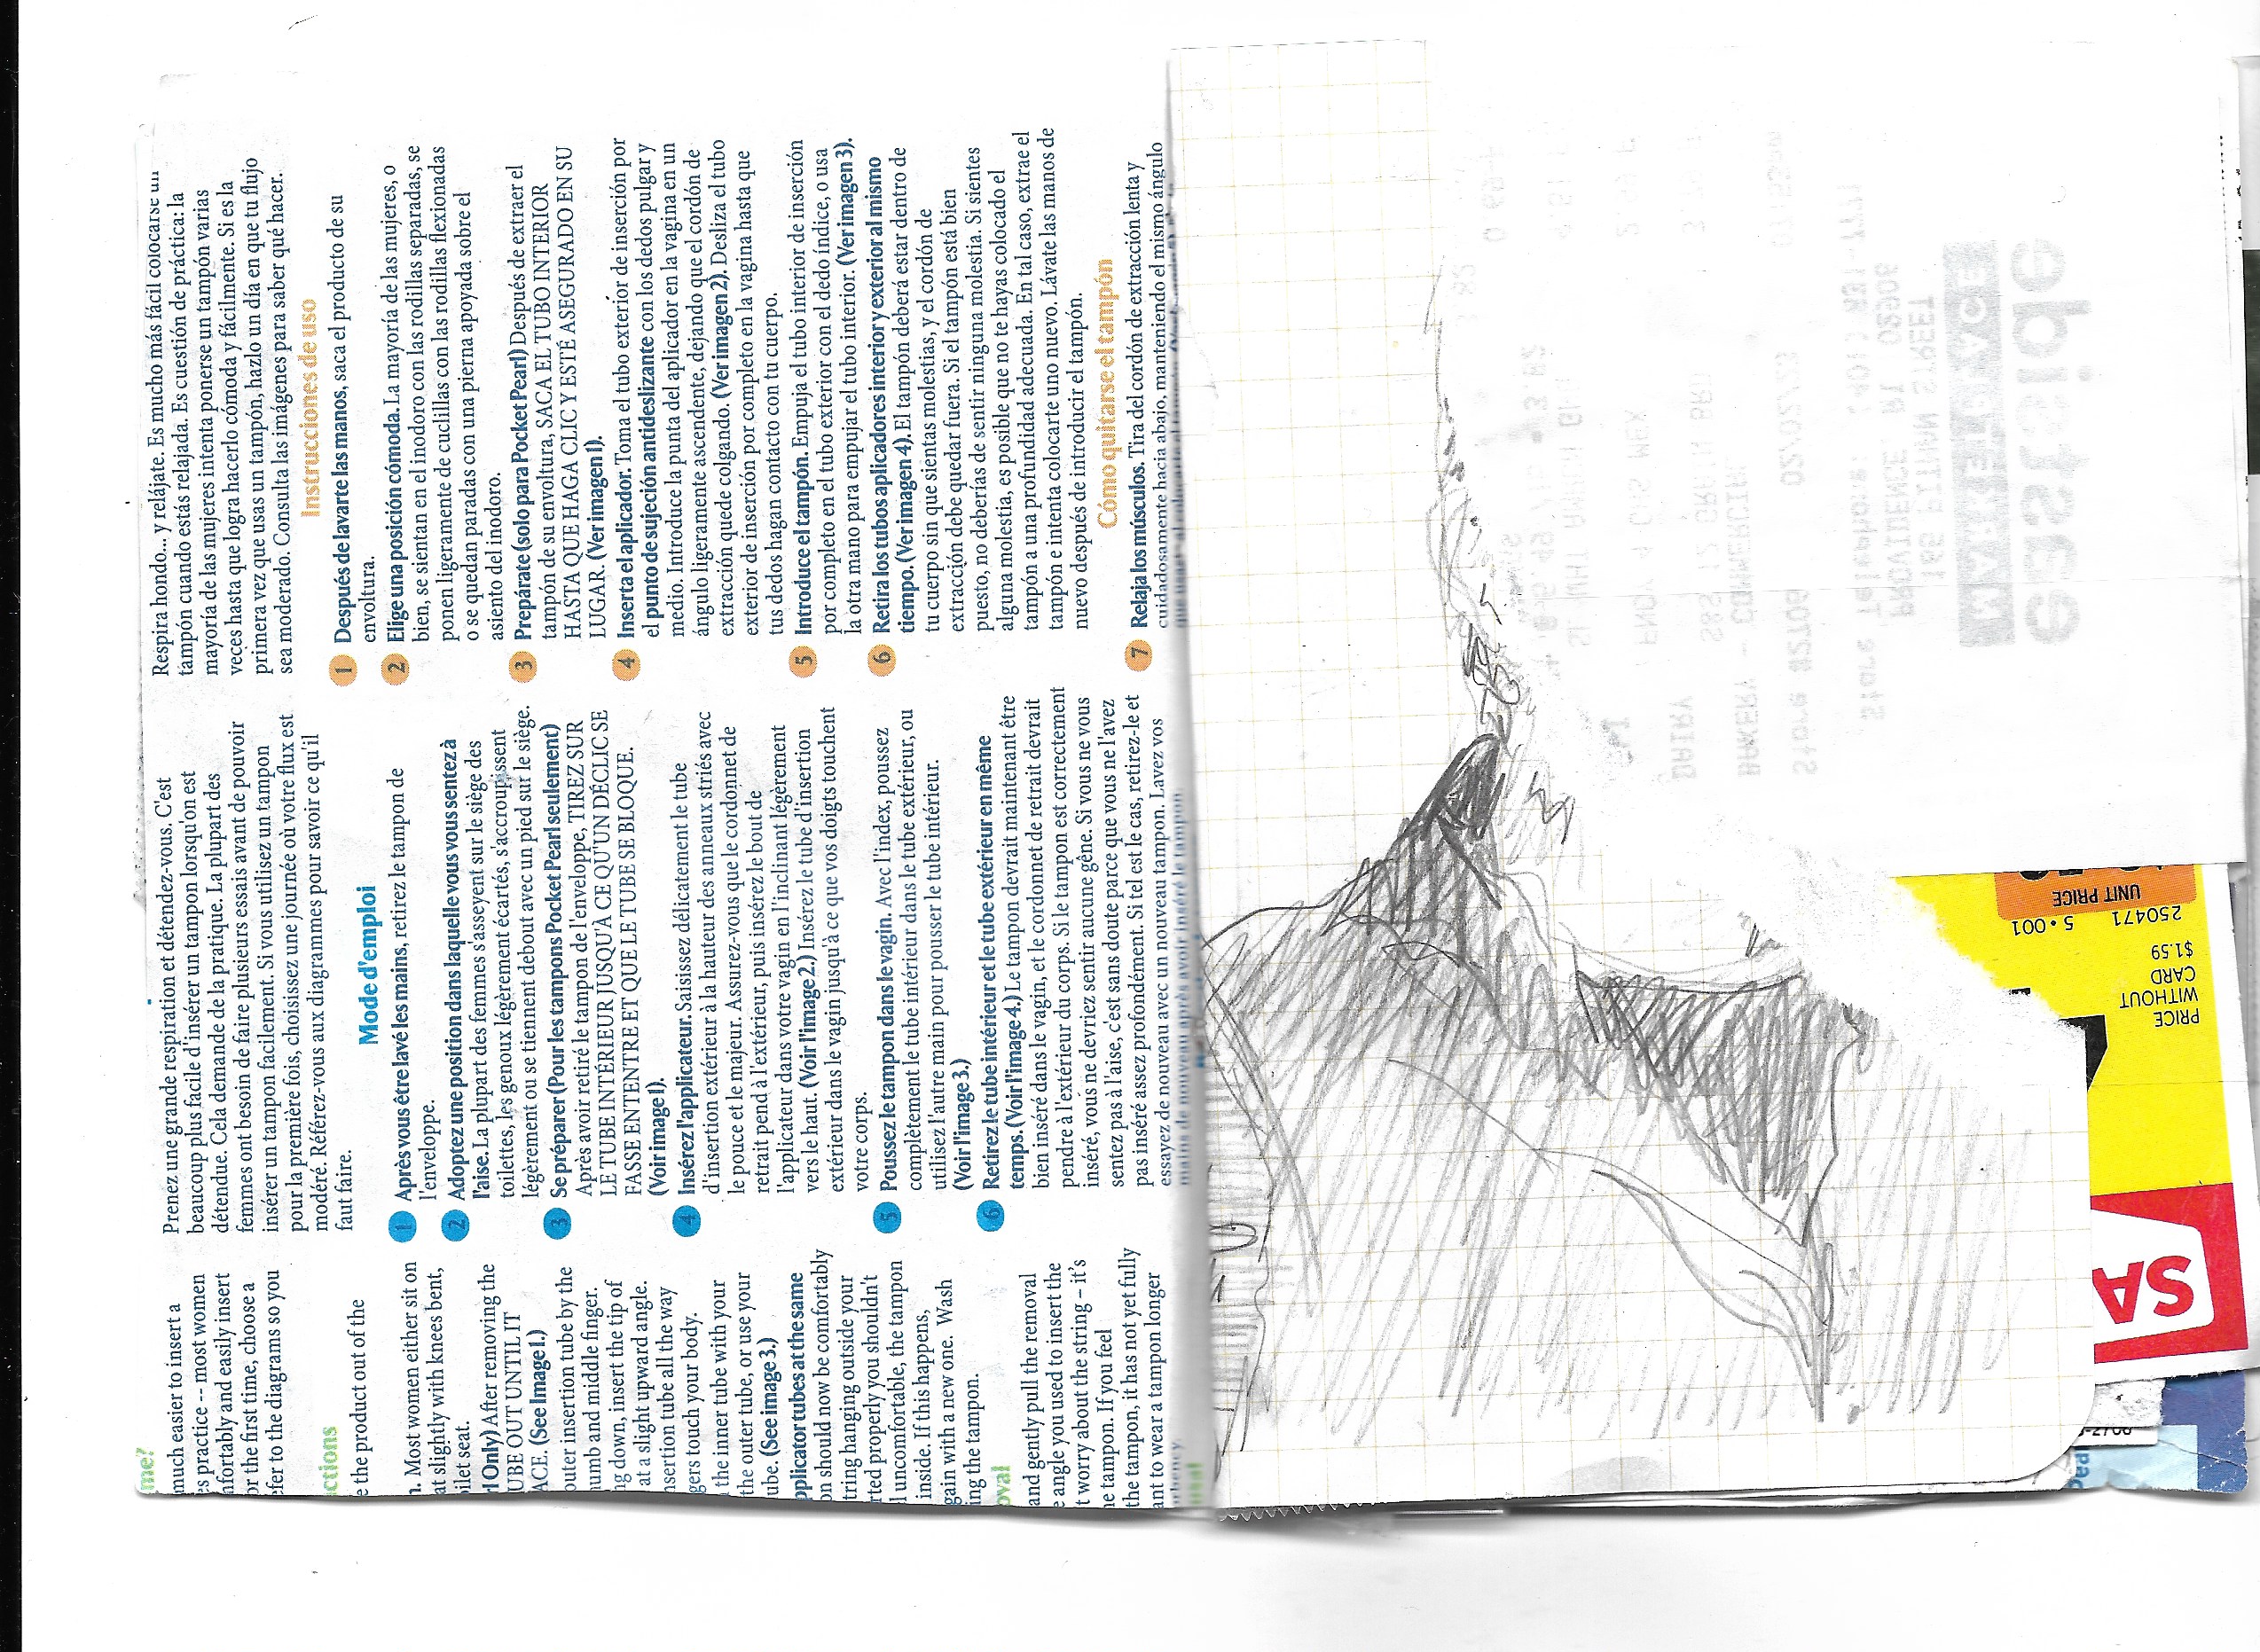 me?
much easier to insert a
es practice -- most women
nfortably and easily insert
or the first time, choose a
efer to the diagrams so you
ctions
e the product out of the
n. Most women either sit on
at slightly with knees bent,
oilet seat.
rl Only) After removing the
UBE OUT UNTIL IT
ACE. (See Image 1.)
outer insertion tube by the
umb and middle finger.
ng down, insert the tip of
at a slight upward angle.
nsertion tube all the way
gers touch your body.
the inner tube with your
the outer tube, or use your
ube. (See image 3.)
pplicator tubes at the same
on should now be comfortably
tring hanging outside your
rted properly you shouldn't
l uncomfortable, the tampon
inside. If this happens,
gain with a new one. Wash
ing the tampon.
oval
and gently pull the removal
e angle you used to insert the
t worry about the string – it's
he tampon. If you feel
the tampon, it has not yet fully
ant to wear a tampon longer
Prenez une grande respiration et détendez-vous. C'est
beaucoup plus facile d'insérer un tampon lorsqu'on est
détendue. Cela demande de la pratique. La plupart des
femmes ont besoin de faire plusieurs essais avant de pouvoir
insérer un tampon facilement. Si vous utilisez un tampon
pour la première fois, choisissez une journée où votre flux est
modéré. Référez-vous aux diagrammes pour savoir ce qu'il
faut faire.
Mode d'emploi
1 Après vous être lavé les mains, retirez le tampon de
l'enveloppe.
2 Adoptez une position dans laquelle vous vous sentez à
l'aise. La plupart des femmes s'asseyent sur le siège des
toilettes, les genoux légèrement écartés, s'accroupissent
légèrement ou se tiennent debout avec un pied sur le siège.
3 Se préparer (Pour les tampons Pocket Pearl seulement)
Après avoir retiré le tampon de l'enveloppe, TIREZ SUR
LE TUBE INTÉRIEUR JUSQU'À CE QU'UN DÉCLIC SE
FASSE ENTENTRE ET QUE LE TUBE SE BLOQUE.
(Voir image 1).
4 Insérez l'applicateur. Saisissez délicatement le tube
d'insertion extérieur à la hauteur des anneaux striés avec
le pouce et le majeur. Assurez-vous que le cordonnet de
retrait pend à l'extérieur, puis insérez le bout de
l'applicateur dans votre vagin en l'inclinant légèrement
vers le haut. (Voir l'image 2.) Insérez le tube d'insertion
extérieur dans le vagin jusqu'à ce que vos doigts touchent
votre corps.
5 Poussez le tampon dans le vagin. Avec l'index, poussez
complètement le tube intérieur dans le tube extérieur, ou
utilisez l'autre main pour pousser le tube intérieur.
(Voir l'image 3.)
6 Retirez le tube intérieur et le tube extérieur en même
temps. (Voir l'image 4.) Le tampon devrait maintenant être
bien inséré dans le vagin, et le cordonnet de retrait devrait
pendre à l'extérieur du corps. Si le tampon est correctement
inséré, vous ne devriez sentir aucune gêne. Si vous ne vous
sentez pas à l'aise, c'est sans doute parce que vous ne l'avez
pas inséré assez profondément. Si tel est le cas, retirez-le et
essayez de nouveau avec un nouveau tampon. Lavez vos
mains de nouveau après avoir inséré le tampon.
Respira hondo... y relájate. Es mucho más fácil colocarse un
tampón cuando estás relajada. Es cuestión de práctica: la
mayoría de las mujeres intenta ponerse un tampón varias
veces hasta que logra hacerlo cómoda y fácilmente. Si es la
primera vez que usas un tampón, hazlo un día en que tu flujo
sea moderado. Consulta las imágenes para saber qué hacer.
Instrucciones de uso
1 Después de lavarte las manos, saca el producto de su
envoltura.
2 Elige una posición cómoda. La mayoría de las mujeres, o
bien, se sientan en el inodoro con las rodillas separadas, se
ponen ligeramente de cuclillas con las rodillas flexionadas
o se quedan paradas con una pierna apoyada sobre el
asiento del inodoro.
3 Prepárate (solo para Pocket Pearl) Después de extraer el
tampón de su envoltura, SACA EL TUBO INTERIOR
HASTA QUE HAGA CLIC Y ESTÉ ASEGURADO EN SU
LUGAR. (Ver imagen 1).
4 Inserta el aplicador. Toma el tubo exterior de inserción por
el punto de sujeción antideslizante con los dedos pulgar y
medio. Introduce la punta del aplicador en la vagina en un
ángulo ligeramente ascendente, dejando que el cordón de
extracción quede colgando. (Ver imagen 2). Desliza el tubo
exterior de inserción por completo en la vagina hasta que
tus dedos hagan contacto con tu cuerpo.
5 Introduce el tampón. Empuja el tubo interior de inserción
por completo en el tubo exterior con el dedo índice, o usa
la otra mano para empujar el tubo interior. (Ver imagen 3).
6 Retira los tubos aplicadores interior y exterior al mismo
tiempo. (Ver imagen 4). El tampón deberá estar dentro de
tu cuerpo sin que sientas molestias, y el cordón de
extracción debe quedar fuera. Si el tampón está bien
puesto, no deberías de sentir ninguna molestia. Si sientes
alguna molestia, es posible que no te hayas colocado el
tampón a una profundidad adecuada. En tal caso, extrae el
tampón e intenta colocarte uno nuevo. Lávate las manos de
nuevo después de introducir el tampón.
Cómo quitarse el tampón
7 Relaja los músculos. Tira del cordón de extracción lenta y
cuidadosamente hacia abajo, manteniendo el mismo ángulo
eastside
MARKETPLACE
165 PITMAN STREET
PROVIDENCE RI 02906
Store Telephone:
Store #2706
BAKERY - COMMERCIAL
DAIRY
UNIT PRICE
250471 5•001
$1.59
CARD
WITHOUT
PRICE
SA